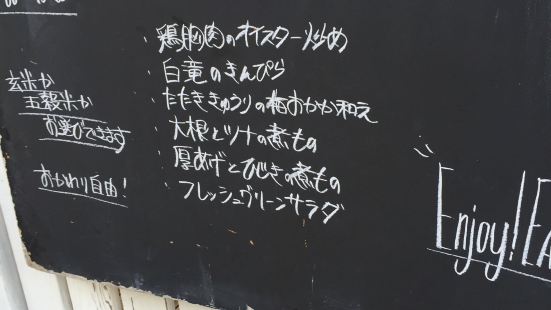 鶏胸肉のオイスター炒め
白竜のきんぴら
たたききゅうりの梅おかか和え
大根とツナの煮もの
厚あげとひじきの煮もの
フレッシュグリーンサラダ
玄米か
五穀米か
お選びできます
おかわり自由!
Enjoy! EA